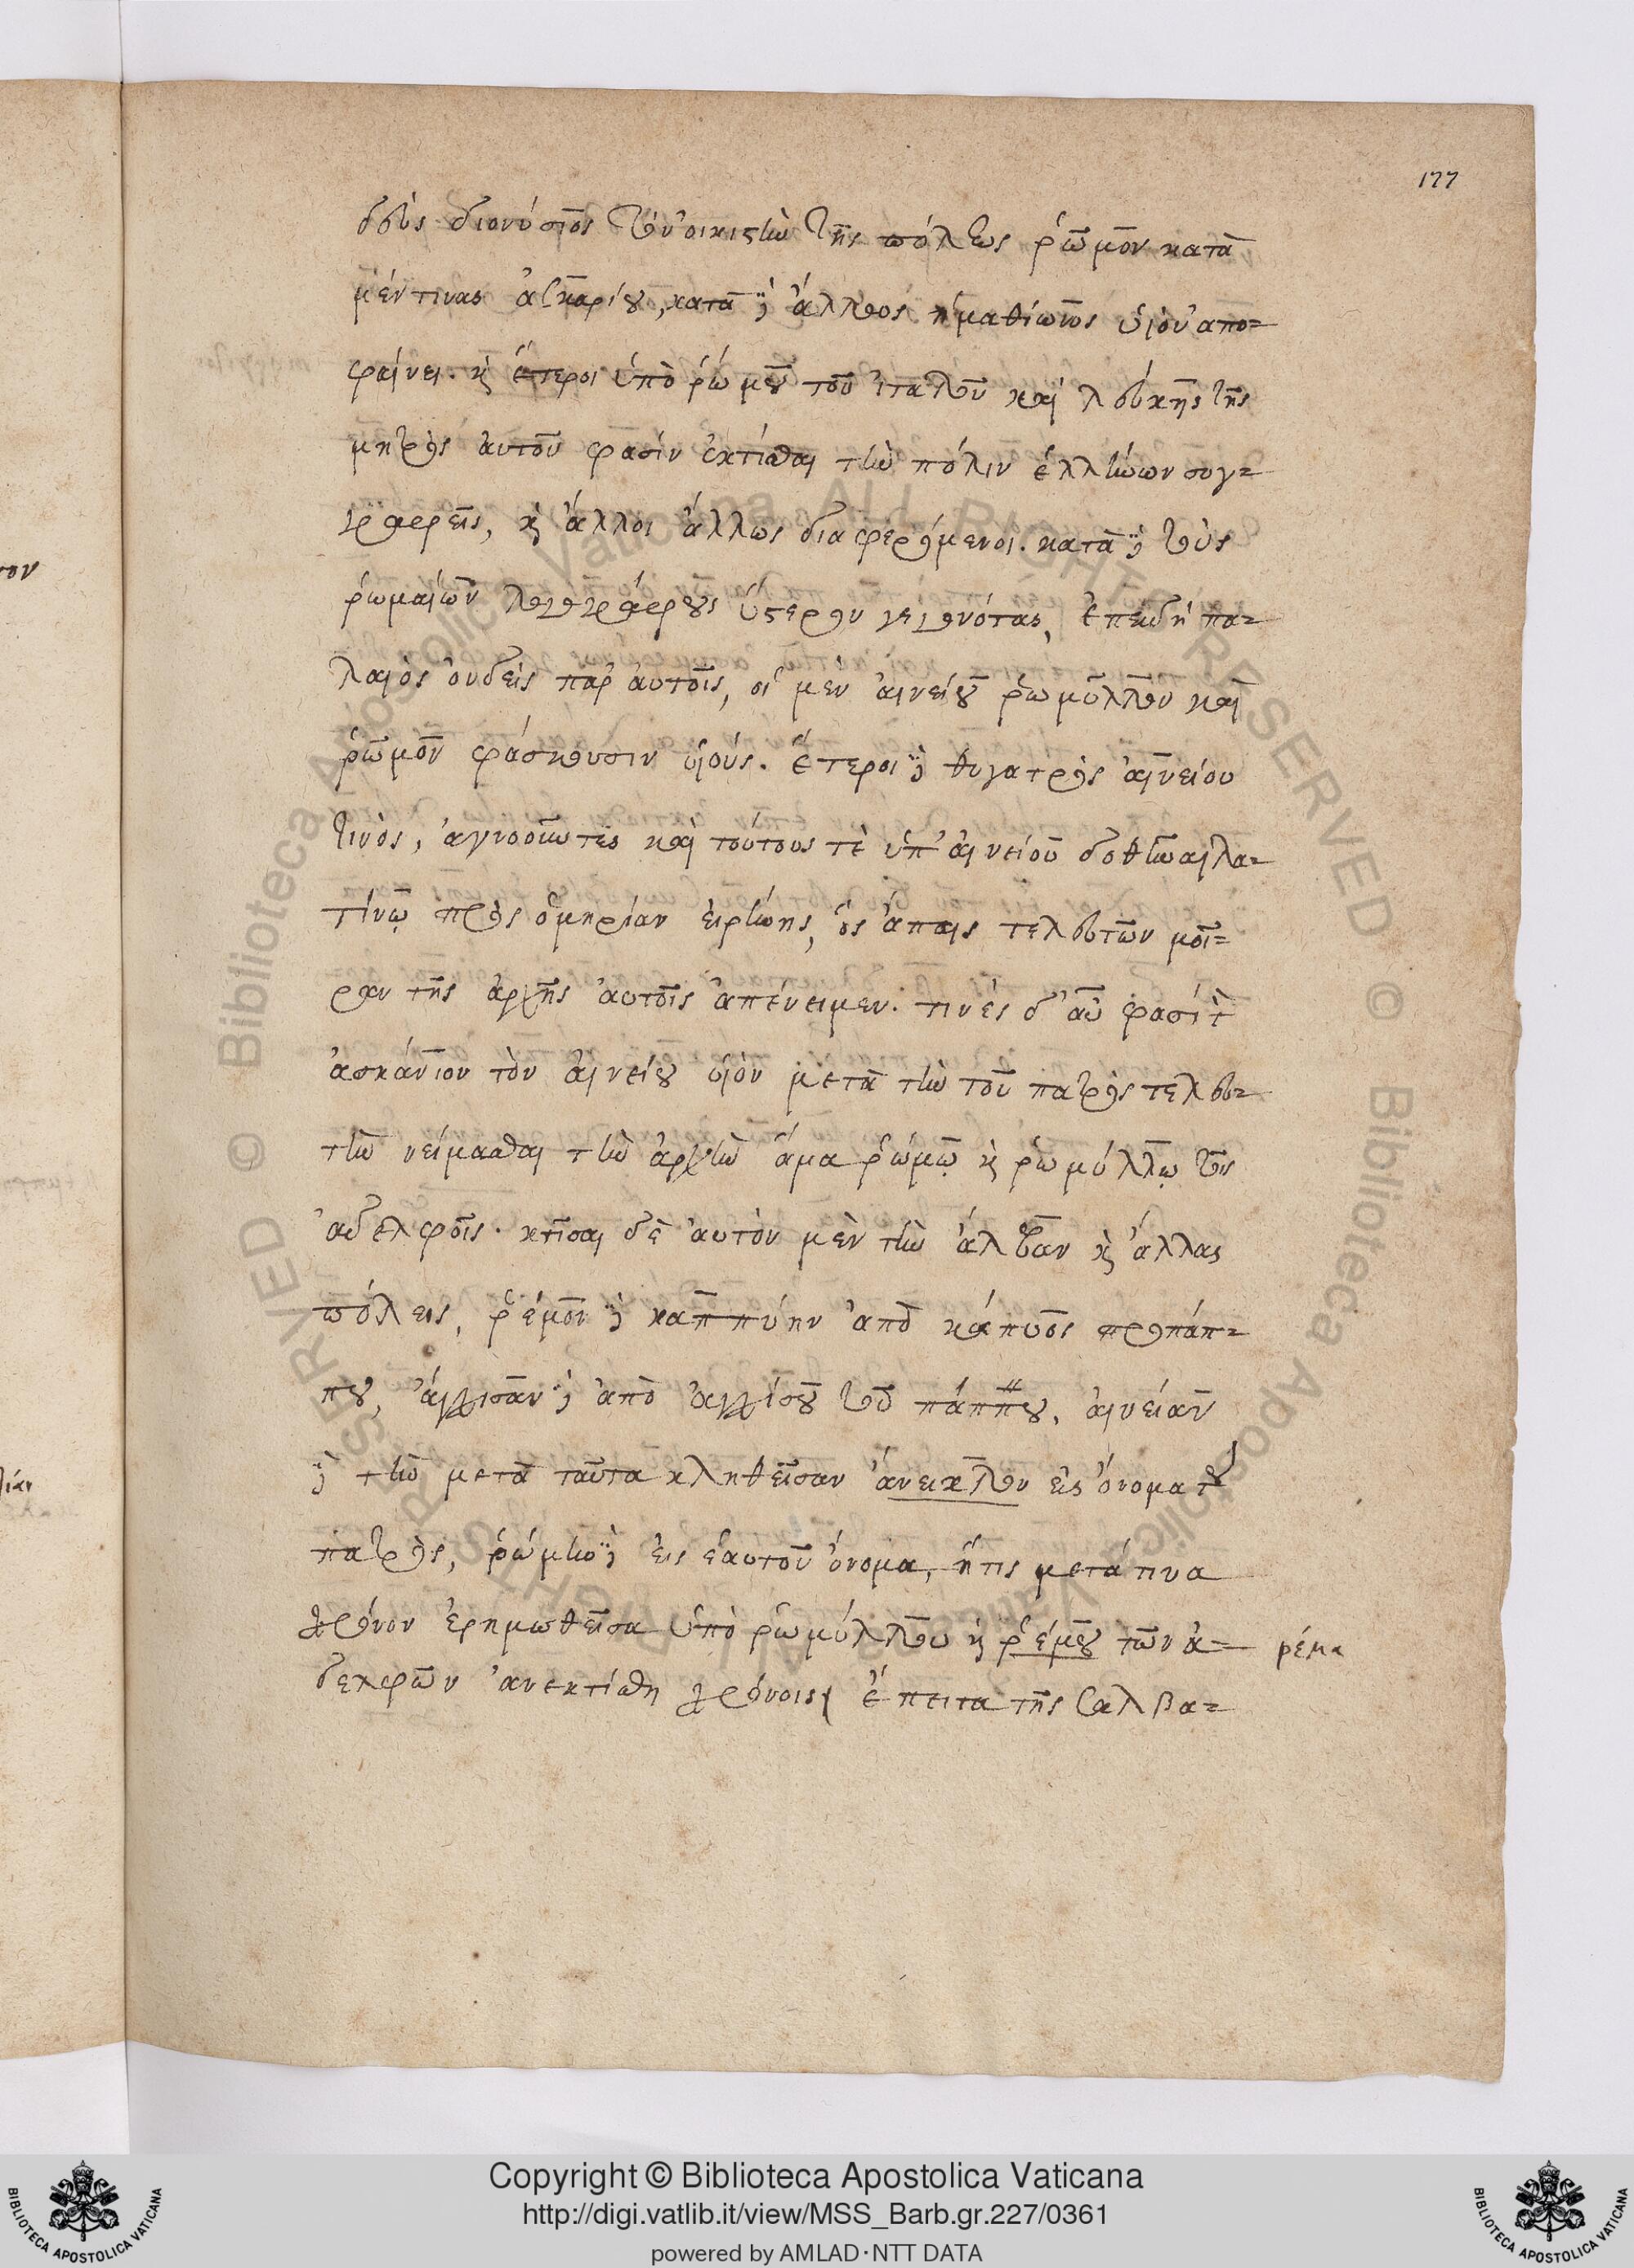 177
δεὺς διονύσιος τὸν οἰκιστὴν τῆς πόλεως ῥῶμον κατὰ
μέν τινας ἀσκαρίου, κατὰ δὲ ἄλλους ἠμαθίωνος υἱὸν ἀπο=
φαίνει. κὶ ἕτεροι ὑπὸ ῥώμου τοῦ ἰταλοῦ καὶ λεύκης τῆς
μητρὸς αὐτοῦ φασίν ἐκτίσθαι τὴν πόλιν ἑλλήνων συγ=
γραφεῖς, κὶ ἄλλοι ἄλλως διαφερόμενοι. κατὰ δὲ τοὺς
ῥωμαίων λογογράφους ὕστερον γεγονότας, ἐπειδὴ πα=
λαιὸς οὐδεὶς παρ' αὐτοῖς, οἱ μεν αἰνείου ῥωμύλλον καὶ
ῥῶμον φάσκουσιν υἱούς. ἕτεροι δὲ θυγατρὸς αἰνείου
τινὸς, ἀγνοοῦντες καὶ τούτους τὲ ὑπ' αἰνείου δοθῆναι λα=
τίνῳ πρὸς ὁμηρίαν εἰρήνης, ὃς ἄπαις τελευτῶν μοῖ=
ραν τῆς ἀρχῆς αὐτοῖς ἀπένειμεν. τινὲς δ' αὖ φασί τ
ἀσκάνιον τὸν αἰνείου υἱὸν μετὰ τὴν τοῦ πατρὸς τελευ=
τὴν νείμασθαι τὴν ἀρχὴν ἅμα ῥώμῳ κὶ ῥωμύλλῳ τοῖς
ἀδελφοῖς. κτίσαι δὲ αὐτὸν μὲν τὴν ἄλβαν κὶ ἄλλας
πόλεις, ῥέμον δὲ καππύην ἀπὸ κάπυος προπάπ=
που, ἄγχισαν δὲ ἀπὸ ἀγχίσου τοῦ πάππου, αἰνείαν
δὲ τὴν μετὰ ταῦτα κληθεῖσαν ἀνεικλον εἰς ὄνομα τοῦ
πατρὸς, ῥώμην δὲ εἰς ἑαυτοῦ ὄνομα, ἥτις μετά τινα
χρόνον ἐρημωθεῖσα ὑπὸ ῥωμύλλου κὶ ῥέμου τῶν ἀ=
δελφῶν ἀνεκτίσθη χρόνοις ἔπειτα τῆς σαλβα=
ρέμα
Copyright © Biblioteca Apostolica Vaticana
http://digi.vatlib.it/view/MSS_Barb.gr.227/0361
powered by AMLAD·NTT DATA